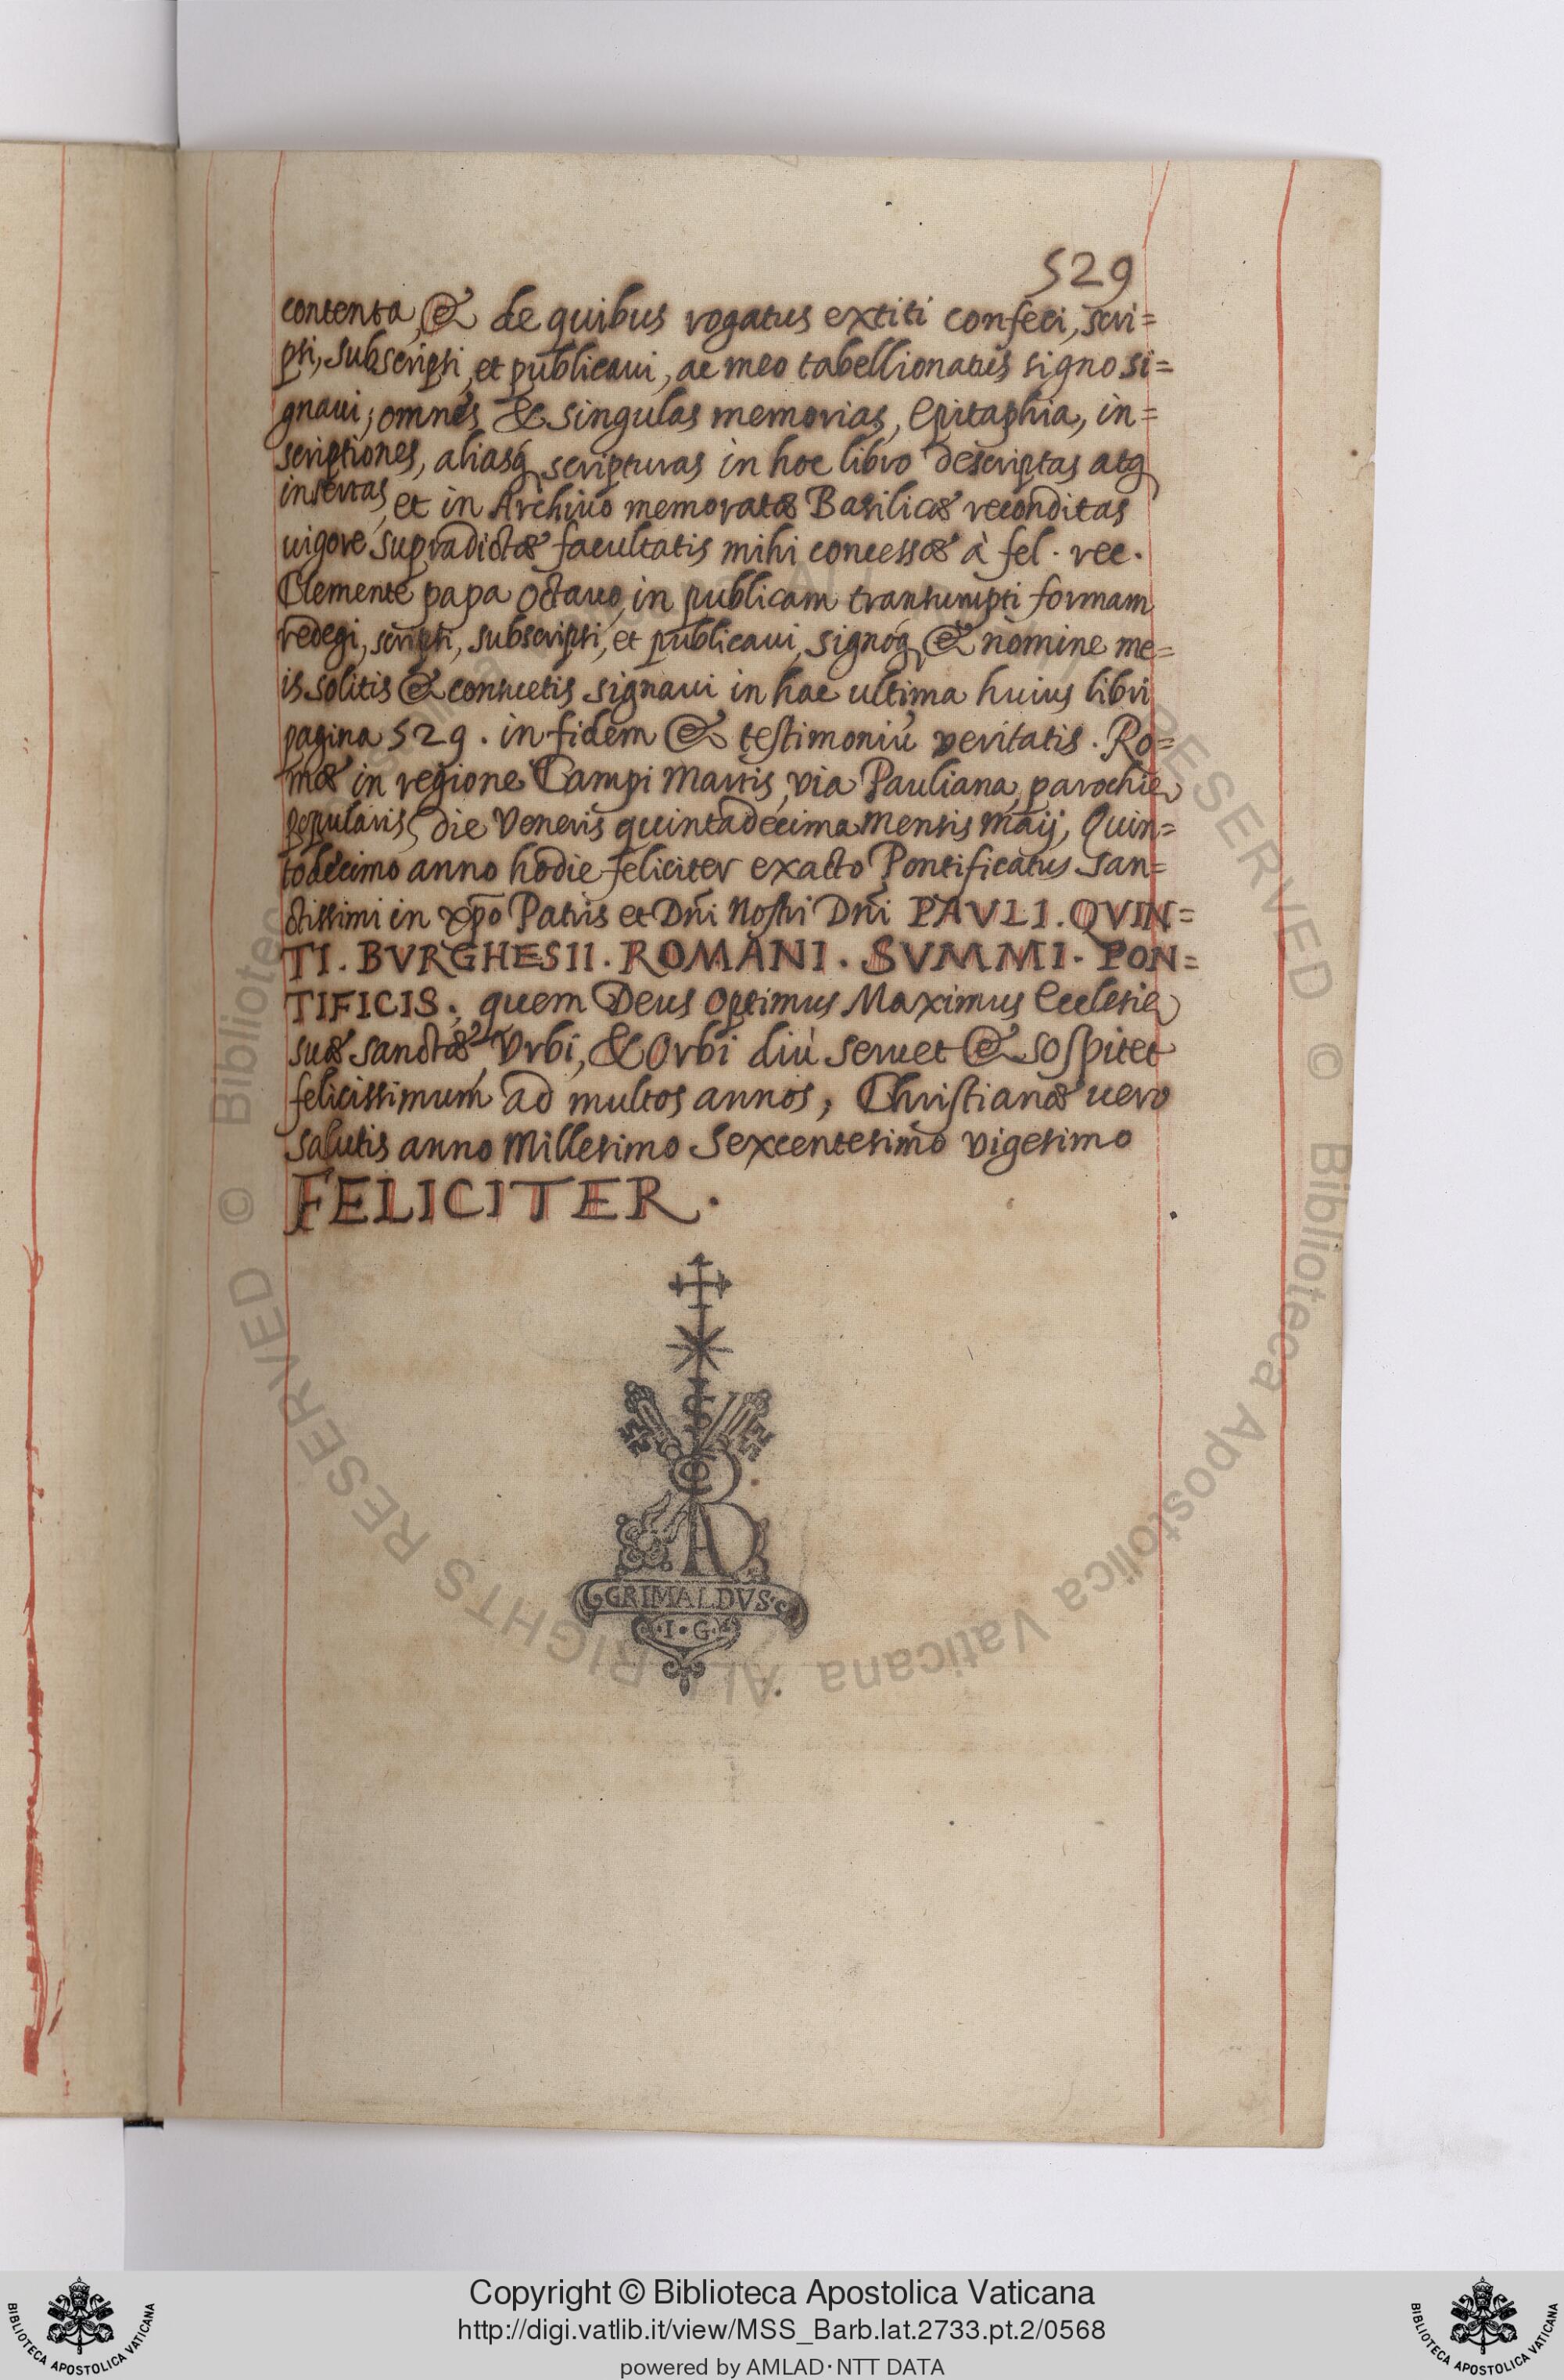 529
contenta, & de quibus rogatus extiti confeci, scri=
psi, subscripsi, et publicaui, ac meo tabellionatus signo si=
gnaui; omnes & singulas memorias, Epitaphia, in=
scriptiones, aliasq scripturas in hoc libro descriptas atq
insertas, et in Archiuo memoratæ Basilicæ reconditas
uigore supradictæ facultatis mihi concessæ à fel. rec.
Clemente papa Octauo, in publicam transumpti formam
redegi, scripsi, subscripsi, et publicaui, signoq & nomine me=
is solitis & consuetis signaui in hac ultima huius libri
pagina 529. in fidem & testimoniū veritatis. Ro=
mæ in regione Campi Martis, via Pauliana, parochie
popularis, die Veneris quintadecima mensis Maij, Quin=
todecimo anno hodie feliciter exacto Pontificatus San=
ctissimi in xp̄o Patris et Dn̄i Nostri Dn̄i PAVLI. QVIN=
TI. BVRGHESII. ROMANI. SVMMI. PON=
TIFICIS; quem Deus Optimus Maximus Ecclesie
suæ sanctæ, Vrbi, & Orbi diù seruet & sospitet
felicissimum ad multos annos, Christianæ uero
salutis anno Millesimo Sexcentesimo vigesimo
FELICITER.
GRIMALDVS
I•G
© Biblioteca Apostolica Vaticana ALL RIGHTS RESERVED
Copyright © Biblioteca Apostolica Vaticana
http://digi.vatlib.it/view/MSS_Barb.lat.2733.pt.2/0568
powered by AMLAD·NTT DATA
BIBLIOTECA APOSTOLICA VATICANA
BIBLIOTECA APOSTOLICA VATICANA